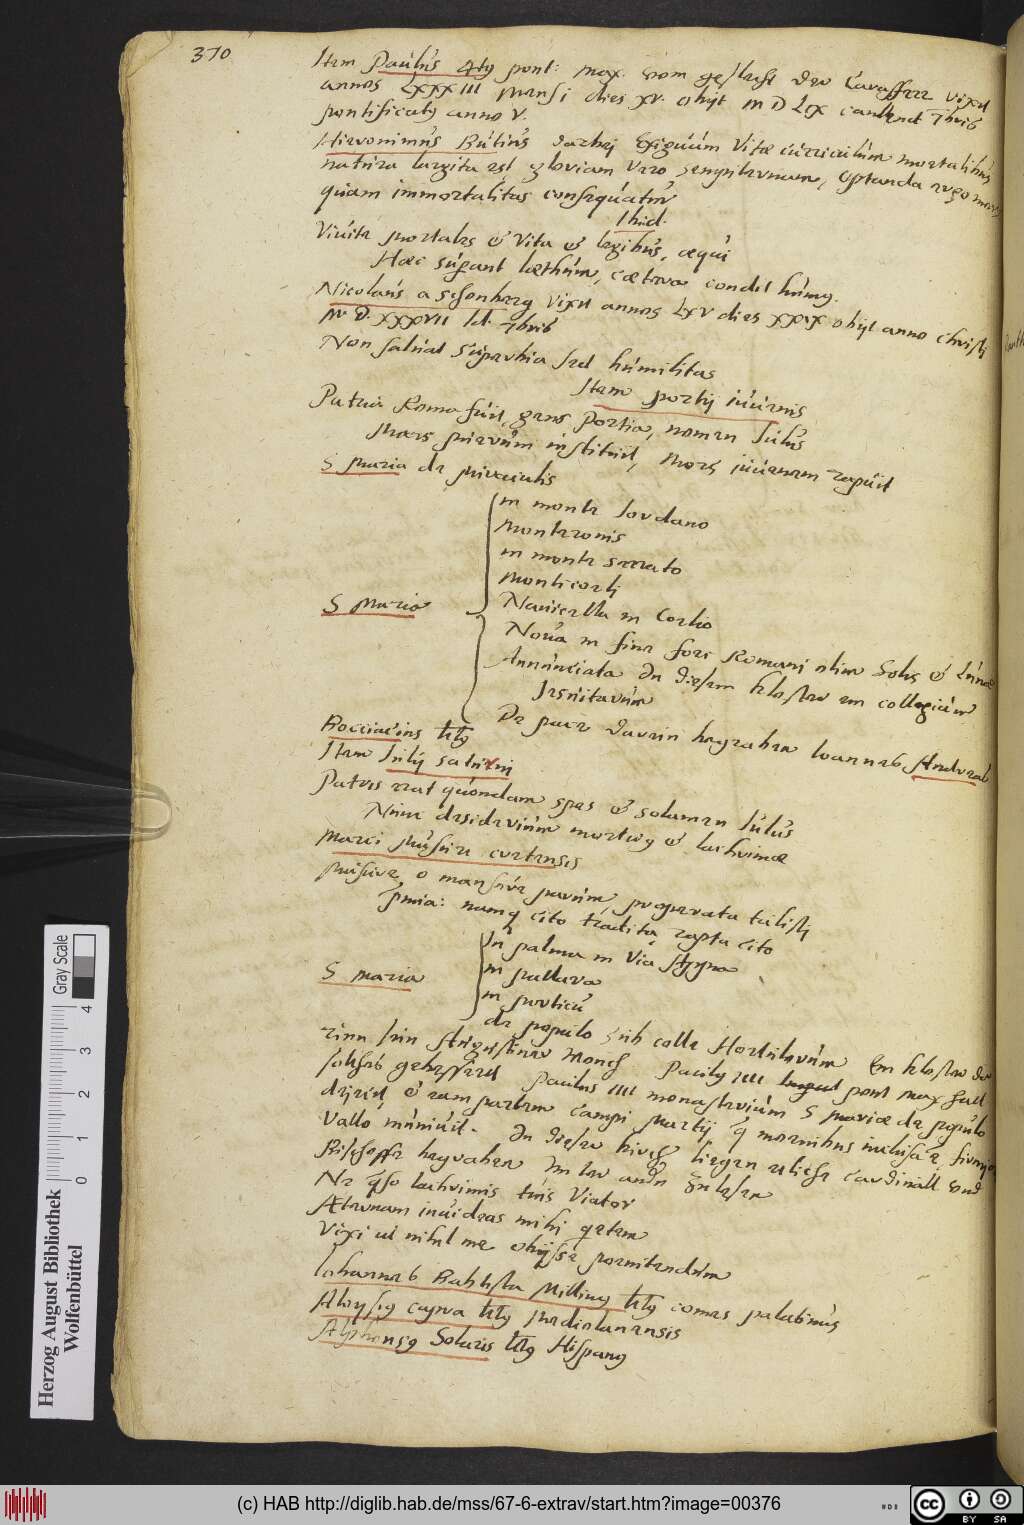 370
Item Paulus 4tus pont: max. vom geslecht der Caraffeee vixit
annos LXXXIII Mensi dies XV. obijt M D LIX calend 7bris
pontificatus anno V.
Hieronimus Butius Exiguum Vitae curriculum mortalibus
natura largita est gloriam vero sempiternam, optanda ergo mors
quam immortalitas consequatur
Ibid.
Viuite mortales & Vita & legibus, aequi
Haec superant laethum, caetera condit humus.
Nicolaus a Schonberg Vixit annos LXV dies XXIX obijt anno christi
M.D.XXXVII Id. 7bris
Non saluat superbia sed humilitas
Item portij iuuenis
Patria Roma fuit, gens Portia, nomen Iulus
Mars puerum instituit, Mors iuuenem rapuit
S Maria de Miraculis
in monte Iordano
Monteronis
in monte serrato
Monticorti
S Maria
Nauicella in Coelio
Noua in fine fori Romani olim Solis & Lunae
Annunciata In diesem kloster ein collegium
Iesuitarum
De pace darein begraben Ioannes Andreas
Bocciacius
Item Iulij saturni
Patris erat quondam spes & solamen Iulus
Nunc desiderium mortuus & lachrimae
Marci Musuri cretensis
Musure o mansure parum, properata tulisti
Praemia: namque cito tradita rapta cito
S Maria
In palma in via Appia
in pallara
in porticu
de populo sub colle Hortulorum Ein kloster der
Augustiner Monch
pont max hatt
monasterium S mariae de populo
& eam partem Campi Martij moenibus inclusae
Vallo muniuit. In dieser kirch liegen etliche Cardinall und
Bischoffe begraben
Ne quaeso lachrimis tuis Viator
AEternam inuideas mihi quietem
Vixi ut nihil me obijsse poenitendum
Iohannes Baptista Millinus comes palatinus
Aloysius Mediolanensis
Alphonsus Solaris Hispanus
Herzog August Bibliothek
Wolfenbüttel
Gray Scale
0 1 2 3 4
(c) HAB http://diglib.hab.de/mss/67-6-extrav/start.htm?image=00376
cc BY SA